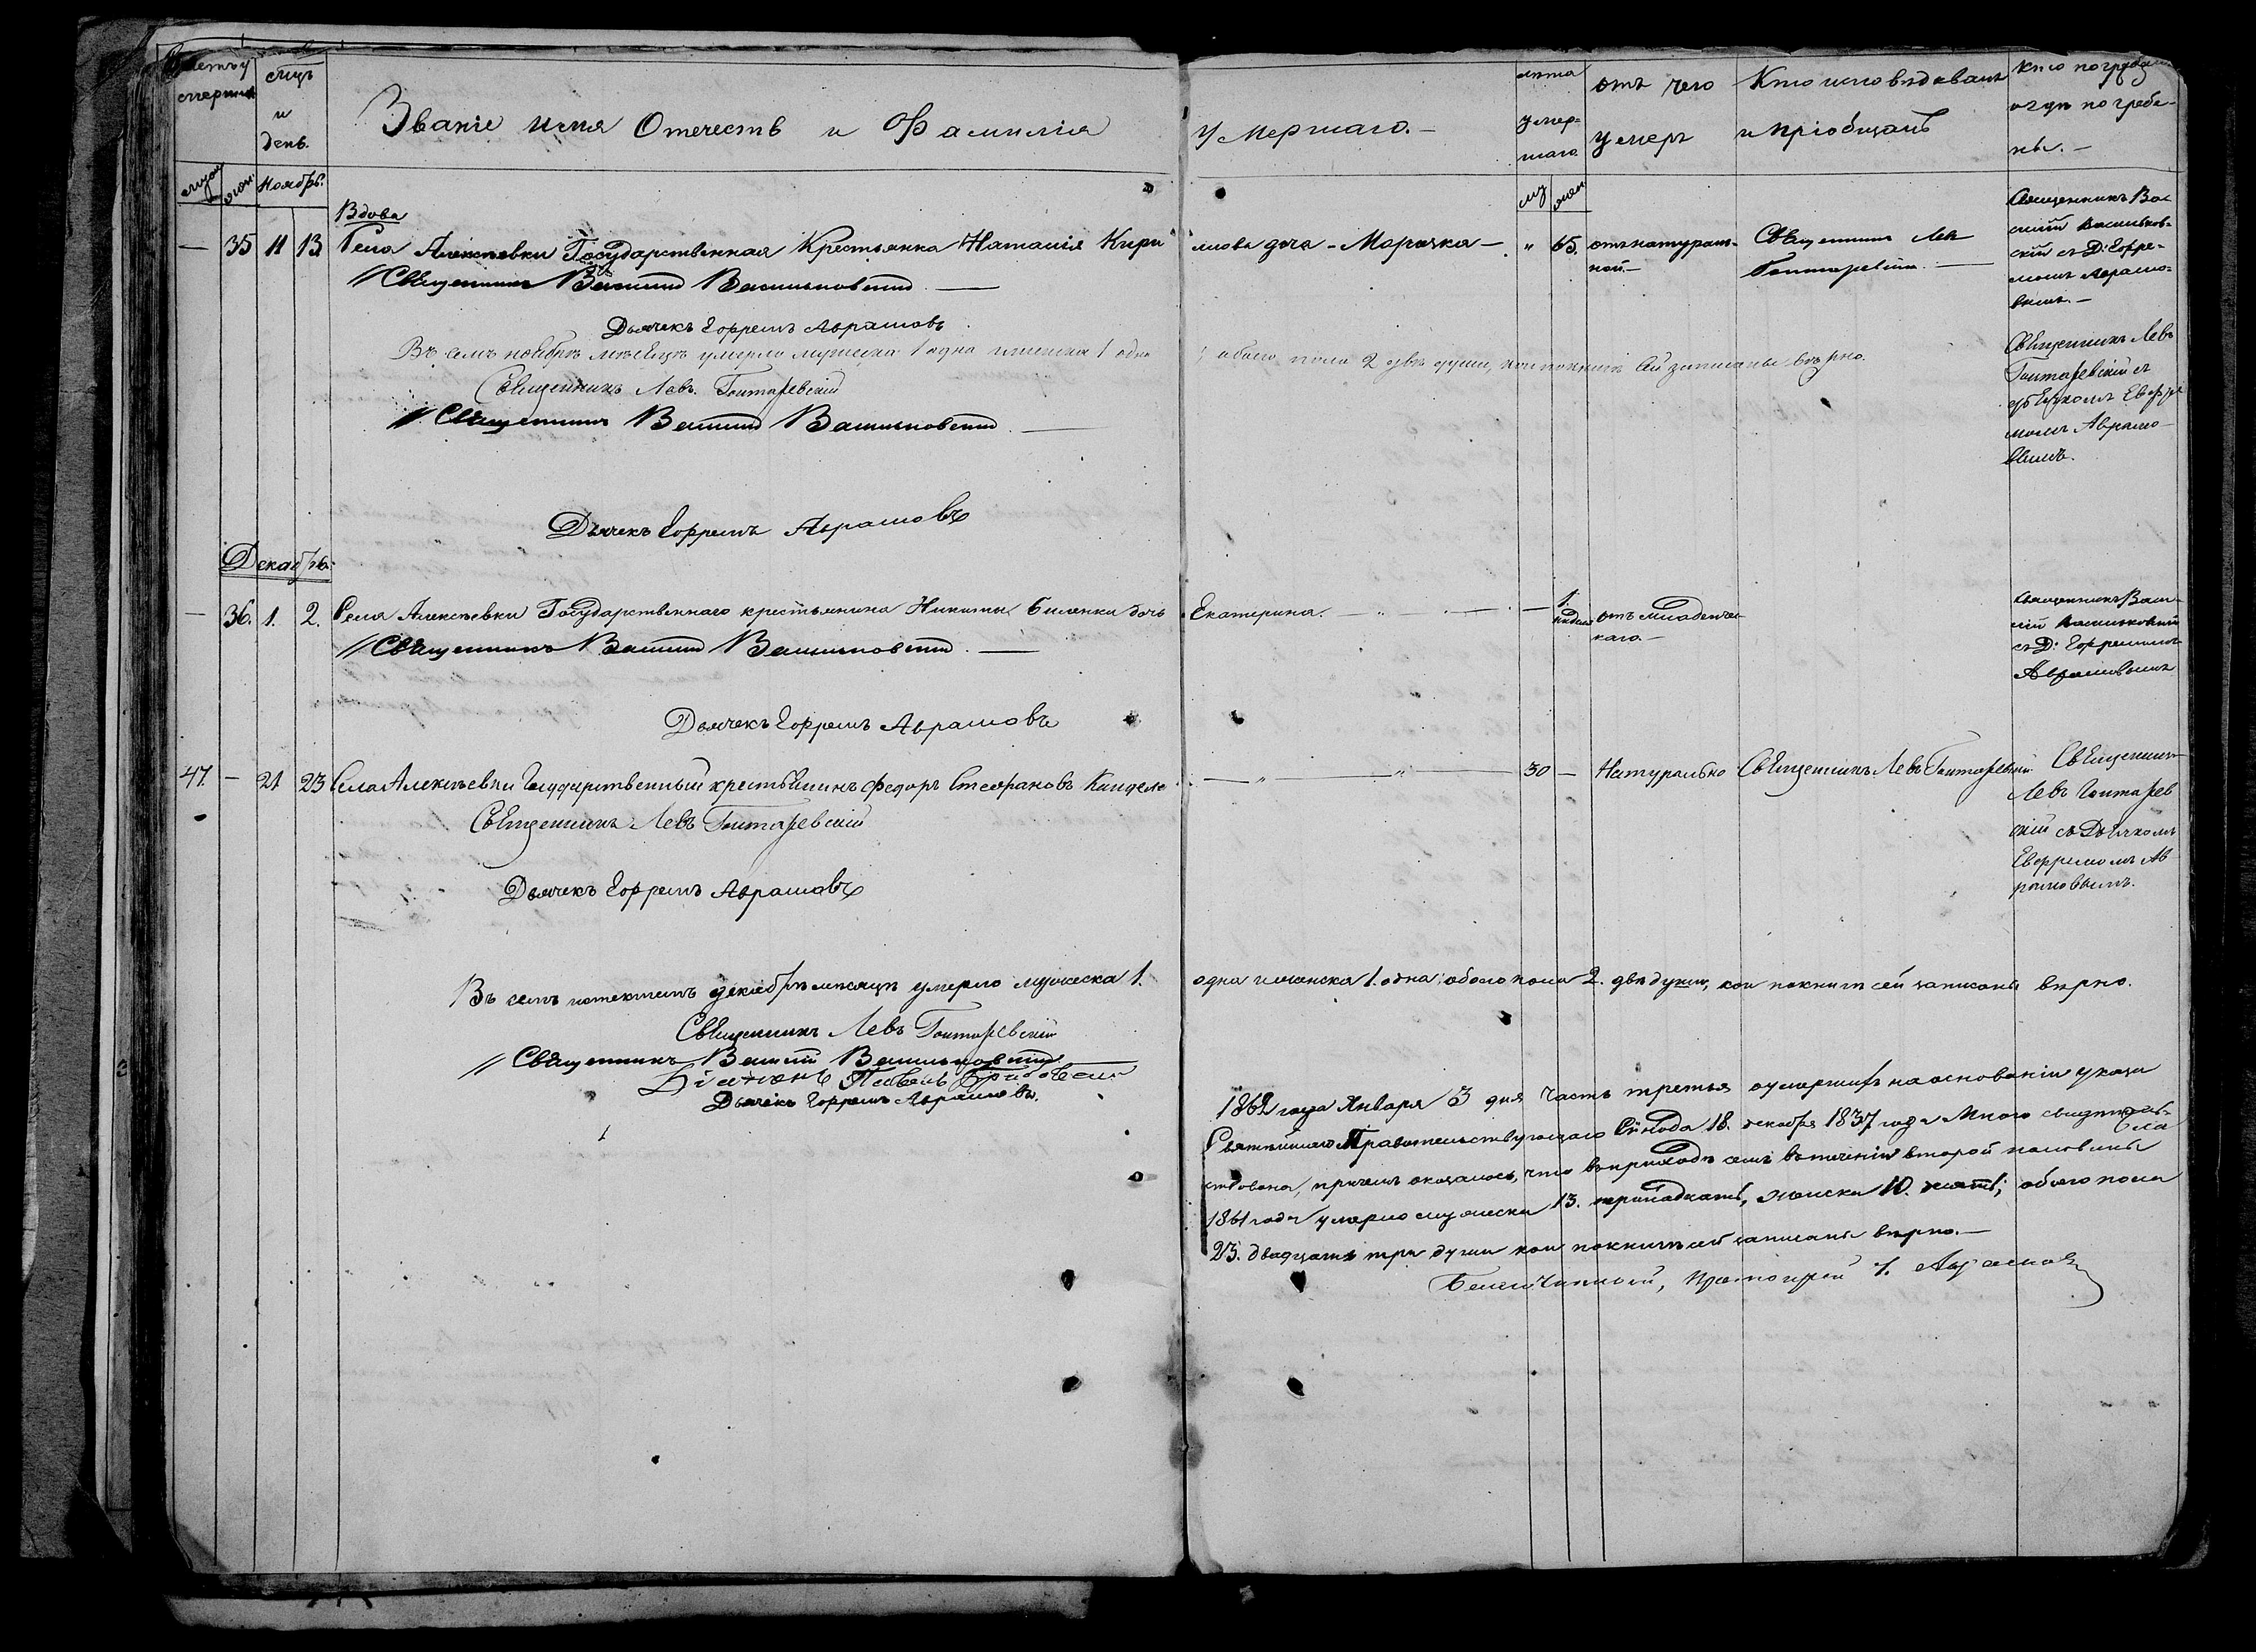 умершихъ
мцъ
и
день.
Званіе имя Отечество и Фамилія
Умершаго. —
лѣта
умер-
шаго.
отъ чего
умеръ
Кто исповѣдовалъ
и пріобщалъ
Кто погребалъ
и гдѣ погребе-
ны. —
муж. жен. Ноябрь.
му жен
Вдова
— 35 11 13 Села Алексѣевки Государственная Крестьянка Наталія Кири
ллова дочь - Марочка — „ 65. отъ натураль-
ной. —
Священникъ Левъ
Гонтаревскій. —
Священникъ Ва-
силій Васильков-
скій съ Д: Ефре-
момъ Аврамо-
вымъ. —
// Священникъ Василій Васильковскій. —
Дьячекъ Ефремъ Аврамовъ.
Въ семъ ноябрѣ мѣсяцѣ умерло мужеска 1 одна женска 1 одна
обоего пола 2 двѣ души, кои по книгѣ сей записаны вѣрно.
Священникъ Левъ
Гонтаревскій съ
дьячкомъ Ефре
момъ Аврамо-
вымъ.
Священникъ Левъ Гонтаревскій
// Священникъ Василій Васильковскій. —
Дьячекъ Ефремъ Аврамовъ
Декабрь.
— 36. 1. 2. Села Алексѣевки Государственнаго крестьянина Никиты Биленки дочь
Екатерина. — „ — — 1.
недѣля отъ младенчес-
каго. —
Священникъ Васи-
лій Васильковскій
съ Д: Ефремомъ
Аврамовымъ
// Священникъ Василій Васильковскій. —
Дьячекъ Ефремъ Аврамовъ
47. — 21 23 Села Алексѣевки Государственный крестьянинъ Федоръ Стефановъ
— „ — „ — 30 — Натурально Священникъ Левъ Гонтаревскій
Священникъ
Левъ Гонтарев
скій съ Дьячкомъ
Ефремомъ Ав
рамовымъ.
Священникъ Левъ Гонтаревскій
Дьячекъ Ефремъ Аврамовъ
Въ семъ истекшемъ декабрѣ мѣсяцѣ умерло мужеска 1.
одна женска 1. одна; обоего пола 2. двѣ души, кои по книгѣ сей записаны вѣрно.
Священникъ Левъ Гонтаревскій
// Священникъ Василій Васильковскій.
Діаконъ Павелъ
Дьячекъ Ефремъ Аврамовъ.
1862 года Января 3 дня Часть третья о умершихъ на основаніи указа
Святѣйшаго Правительствующаго Сѵнода 18. декабря 1837 года Мною свидѣтель-
ствована, причемъ оказалось, что въ приходѣ семъ въ теченіи второй половины
1861 года умерло мужеска 13. тринадцать, женска 10. десять; обоего пола
23. двадцать три души кои по книгѣ сей записаны вѣрно. —
Благочинный, Протоіерей І. Аврамовъ